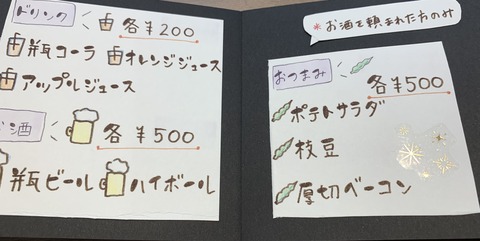 ドリンク 各¥200
瓶コーラ オレンジジュース
アップルジュース
お酒 各¥500
瓶ビール ハイボール
*お酒を頼まれた方のみ
おつまみ
各¥500
ポテトサラダ
枝豆
厚切ベーコン